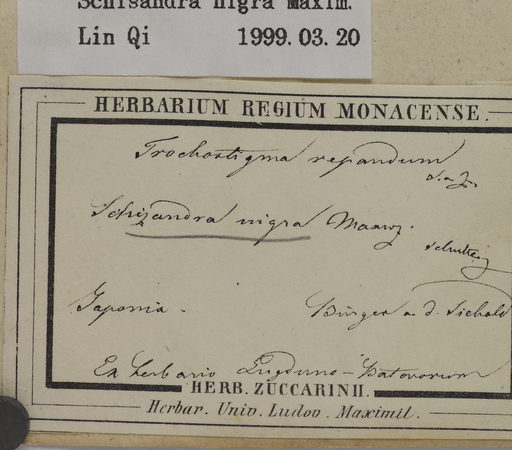 Schisandra nigra Maxim.
Lin Qi 1999.03.20
HERBARIUM REGIUM MONACENSE.
Trochostigma repandum
S. a Z.
Schizandra nigra Maxwz.
Japonia.
Bürger a. d. Siebold
Ex herbario Lugduno-Batavorum
HERB. ZUCCARINII.
Herbar. Univ. Ludov. Maximil.